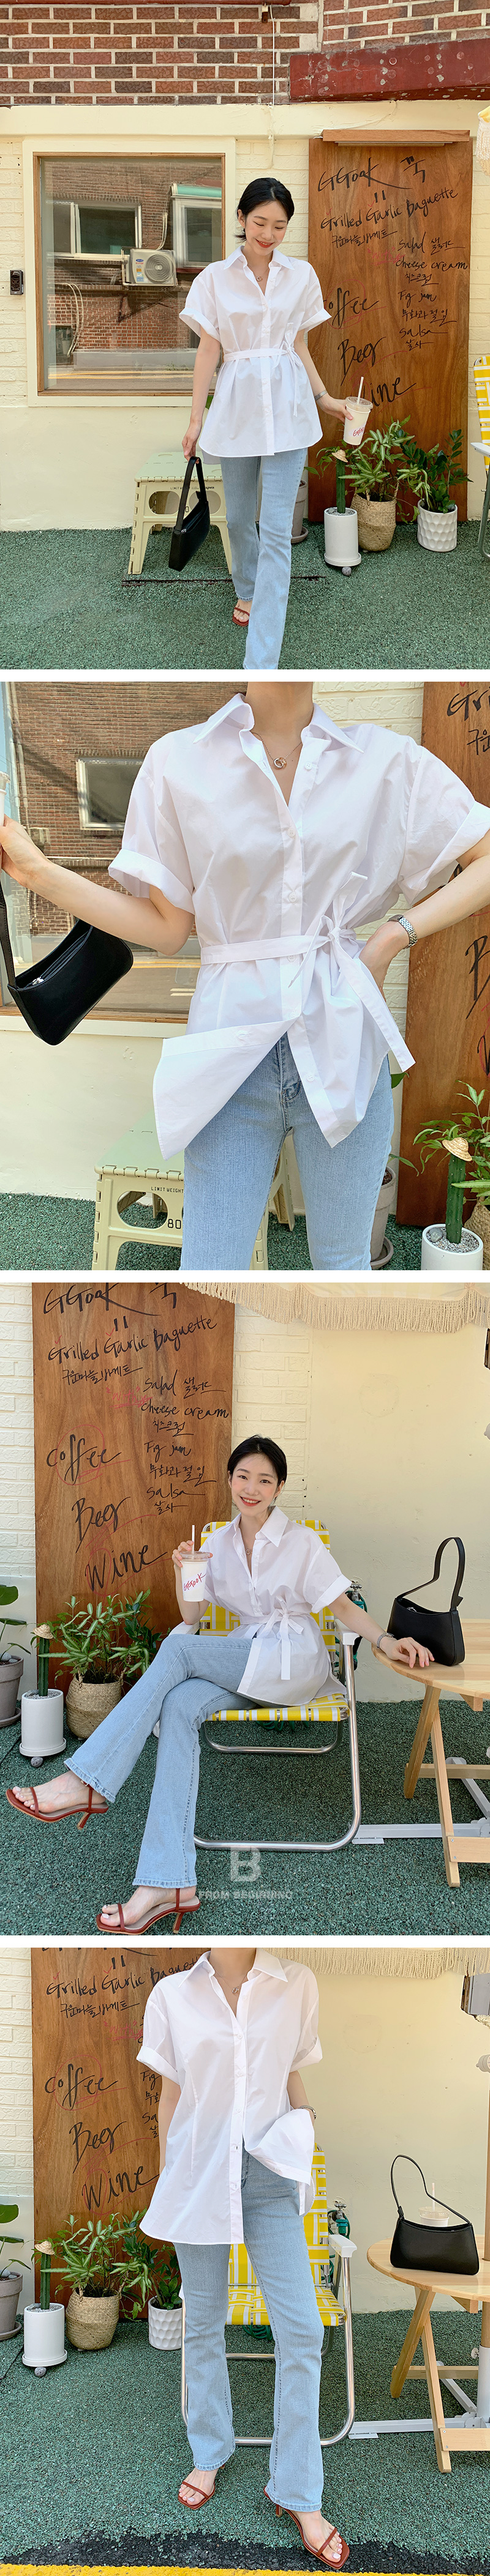 GGOAK 꾹
Grilled Garlic Baguette
구운마늘바게트
Salad 샐러드
Cheese cream
치즈크림
Coffee
Fig jam
무화과 잼
Beer
Salsa
살사
Wine
LIMIT WEIGHT
80
GGOAK
Grilled Garlic Baguette
구운마늘바게트
Salad 샐러드
Cheese cream
치즈크림
Coffee
Fig jam
무화과 잼
Beer
Salsa
살사
Wine
GGOAK
B
FROM BEGINNING
Grilled Garlic Baguette
구운마늘바게트
Coffee
Beer
Wine